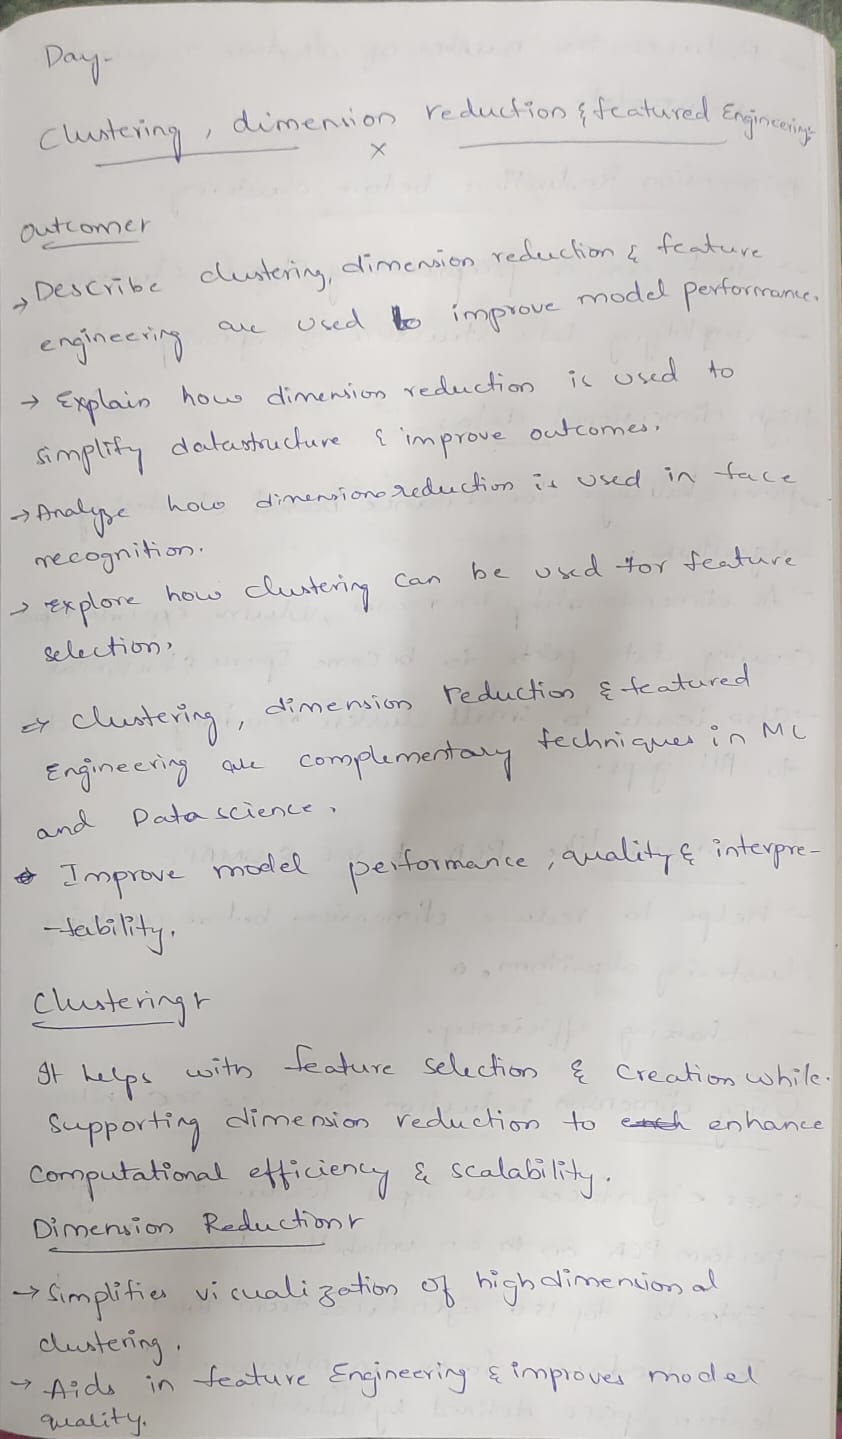 Day-
Clustering, dimension reduction & featured Engineering:
x
Outcomes
→ Describe clustering, dimension reduction & feature
engineering are used to improve model performance.
→ Explain how dimension reduction is used to
simplify datastructure & improve outcomes.
→ Analyze how dimension reduction is used in face
recognition.
→ explore how clustering can be used for feature
selection.
⇒ Clustering, dimension reduction & featured
Engineering are complementary techniques in ML
and Data science.
* Improve model performance, quality & interpre-
-tability.
Clustering:-
It helps with feature selection & creation while.
supporting dimension reduction to enhance
computational efficiency & scalability.
Dimension Reduction:-
→ Simplifies visualization of high dimensional
clustering.
→ Aids in feature Engineering & improves model
quality.